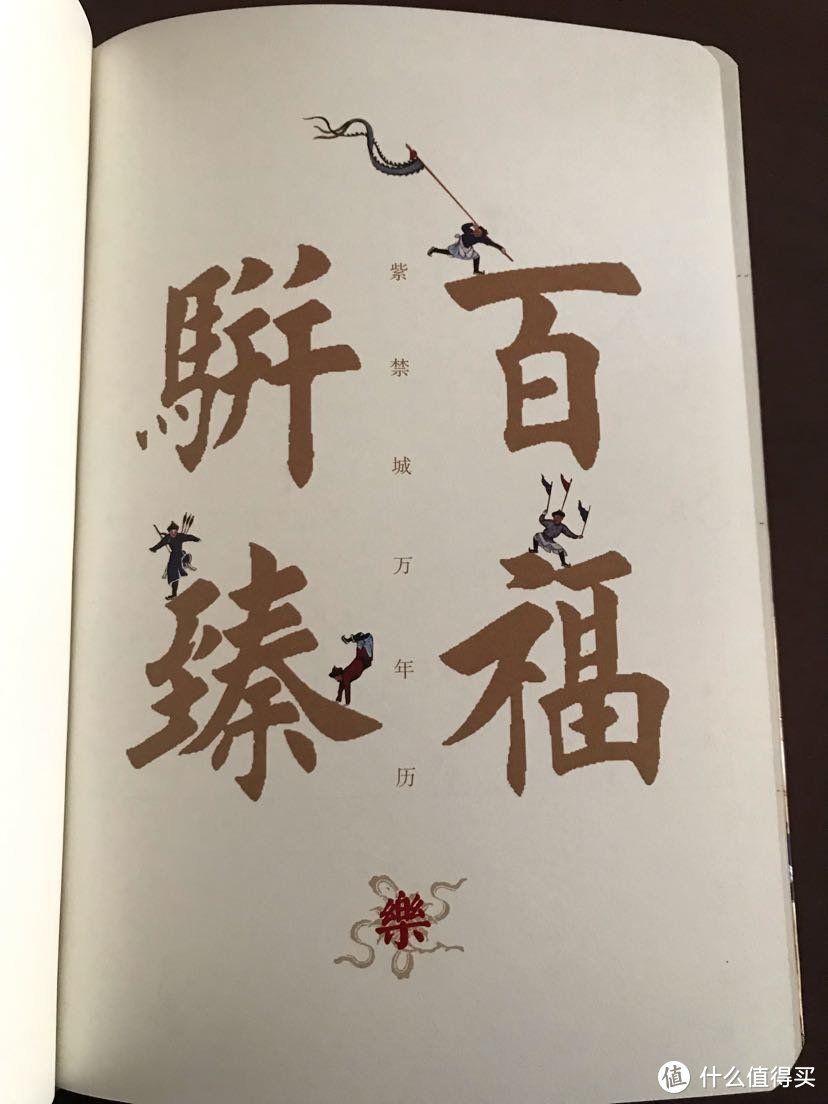 百福
紫禁城万年历
駢臻
樂
值 什么值得买